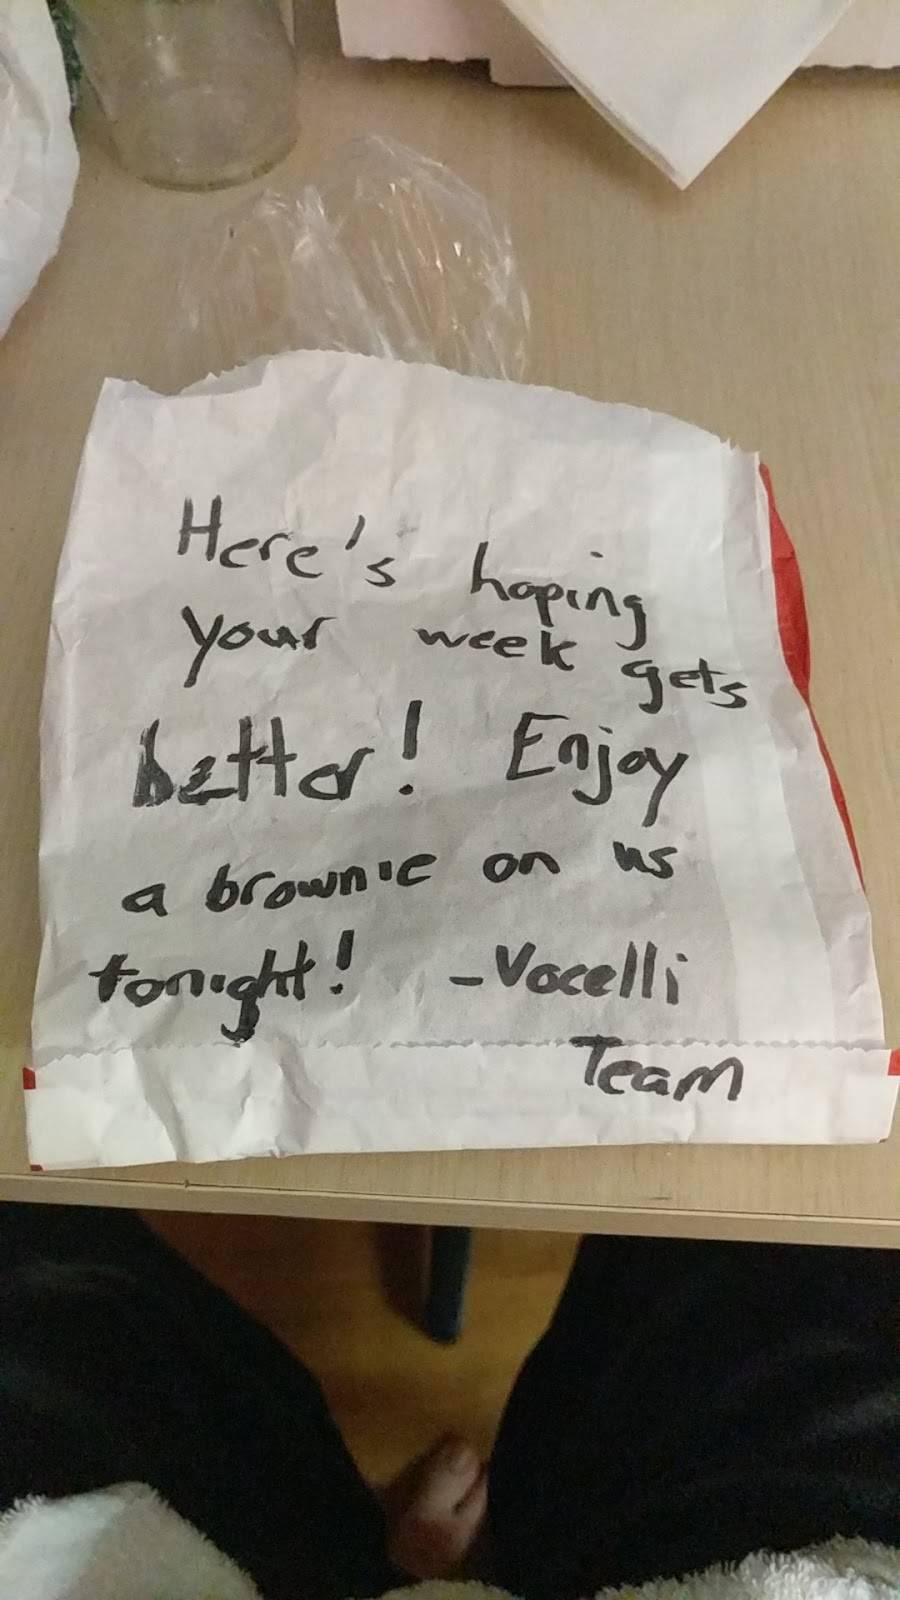 Here's hoping
your week gets
better! Enjoy
a brownie on us
tonight! -Vocelli
Team